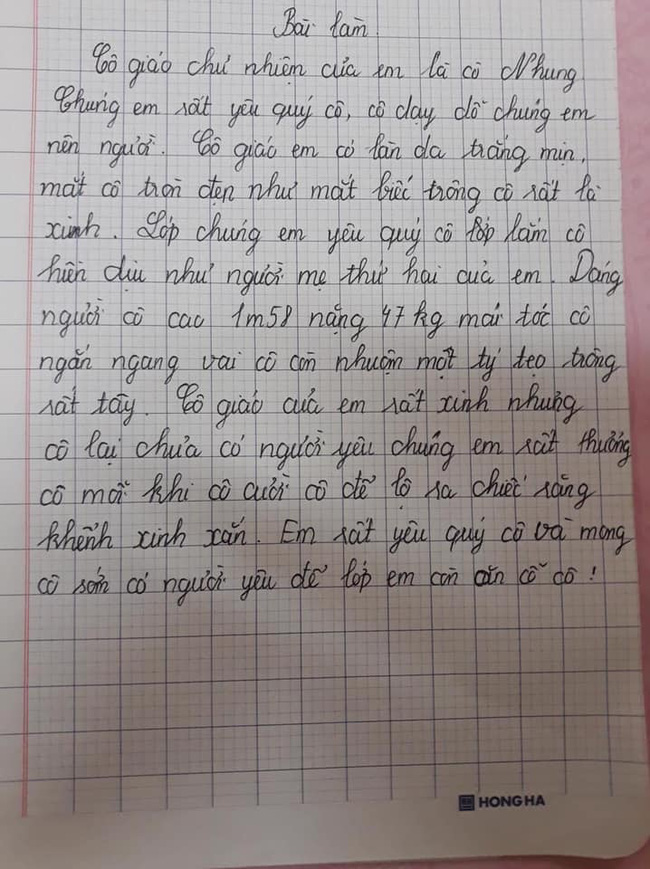 Bài làm.
Cô giáo chủ nhiệm của em là cô Nhung
Chúng em rất yêu quý cô, cô dạy dỗ chúng em
nên người. Cô giáo em có làn da trắng mịn,
mắt cô tròn đẹp như mắt biếc trông cô rất là
xinh. Lớp chúng em yêu quý cô lắm cô
hiền dịu như người mẹ thứ hai của em. Dáng
người cô cao 1m58 nặng 47 kg mái tóc cô
ngắn ngang vai cô còn nhuộm một tý tẹo trông
rất tây. Cô giáo của em rất xinh nhưng
cô lại chưa có người yêu chúng em rất thương
cô mỗi khi cô cười cô để lộ ra chiếc răng
khểnh xinh xắn. Em rất yêu quý cô và mong
cô sớm có người yêu để lớp em còn ăn cỗ cô!
HONG HA